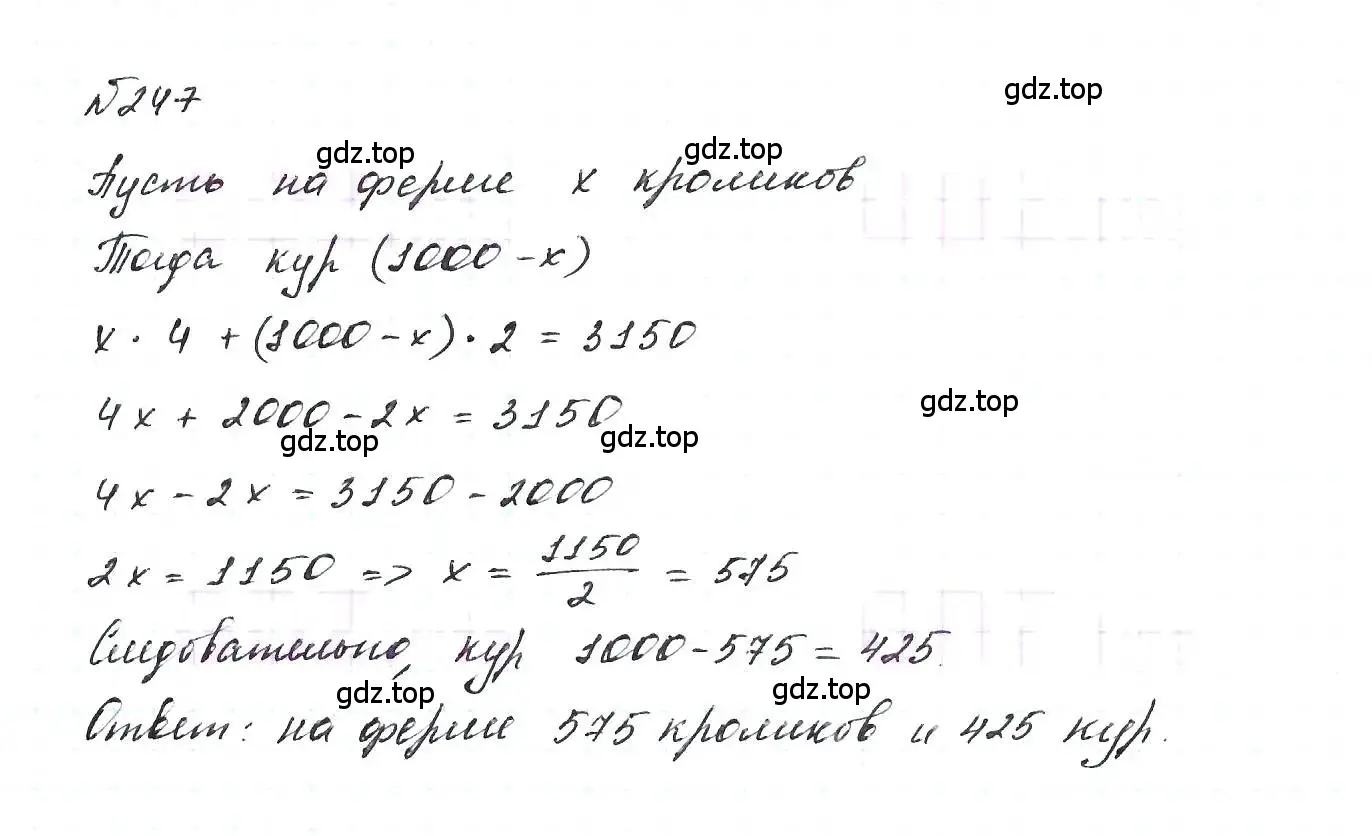 №247
gdz.top
gdz.top gdz.top
Пусть на ферме x кроликов
Тогда кур (1000 - x)
x · 4 + (1000 - x) · 2 = 3150
4x + 2000 - 2x = 3150
gdz.top
gdz.top gdz.top
4x - 2x = 3150 - 2000
2x = 1150 => x = 1150/2 = 575
Следовательно, кур 1000 - 575 = 425.
gdz.top gdz.top
Ответ: на ферме 575 кроликов и 425 кур.